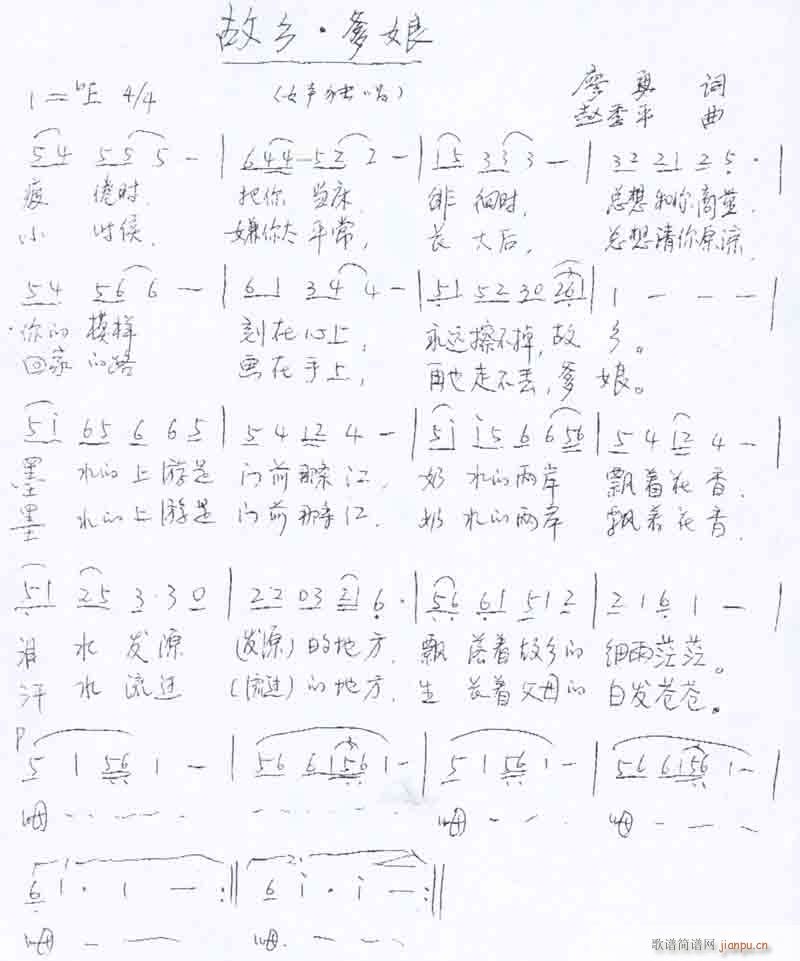 故乡·爹娘
1=♭E 4/4 (女声独唱) 廖勇 词
赵季平 曲
5 4 5 5 5 - | 6 4 4 5 2 2 - | 1 5 3 3 3 - | 3 2 2 1 2 5 · |
疲倦时. 把你当床. 徘徊时, 总想和你商量.
小时候. 嫌你太平常, 长大后, 总想请你原谅.
5 4 5 6 6 - | 6 1 3 4 4 - | 5 1 5 2 3 0 2 6 1 | 1 - - - |
你的模样 刻在心上, 永远擦不掉,故乡。
回家的路 画在手上, 再也走不丢,爹娘。
5 i 6 5 6 6 5 | 5 4 1 2 4 - | 5 i i 5 6 6 5 6 | 5 4 1 2 4 - |
墨水的上游是 门前那条江. 奶水的两岸 飘着花香.
墨水的上游是 门前那条江. 奶水的两岸 飘着花香.
5 1 2 5 3 · 3 0 | 2 2 0 3 2 1 6 · | 5 6 6 1 5 1 2 | 2 1 6 1 - |
泪水发源 (发源)的地方. 飘落着故乡的 细雨茫茫。
汗水流过 (流过)的地方. 生长着父母的 白发苍苍。
P
5 1 5 6 1 - | 5 6 6 1 5 6 1 - | 5 1 5 6 1 - | 5 6 6 1 5 6 1 - |
呣 - - - - - - - 呣 - - - 呣 - - -
6 i · i - :|| 6 i · i - :||
呣 - - - 呣. - - -
歌谱简谱网
jianpu.cn